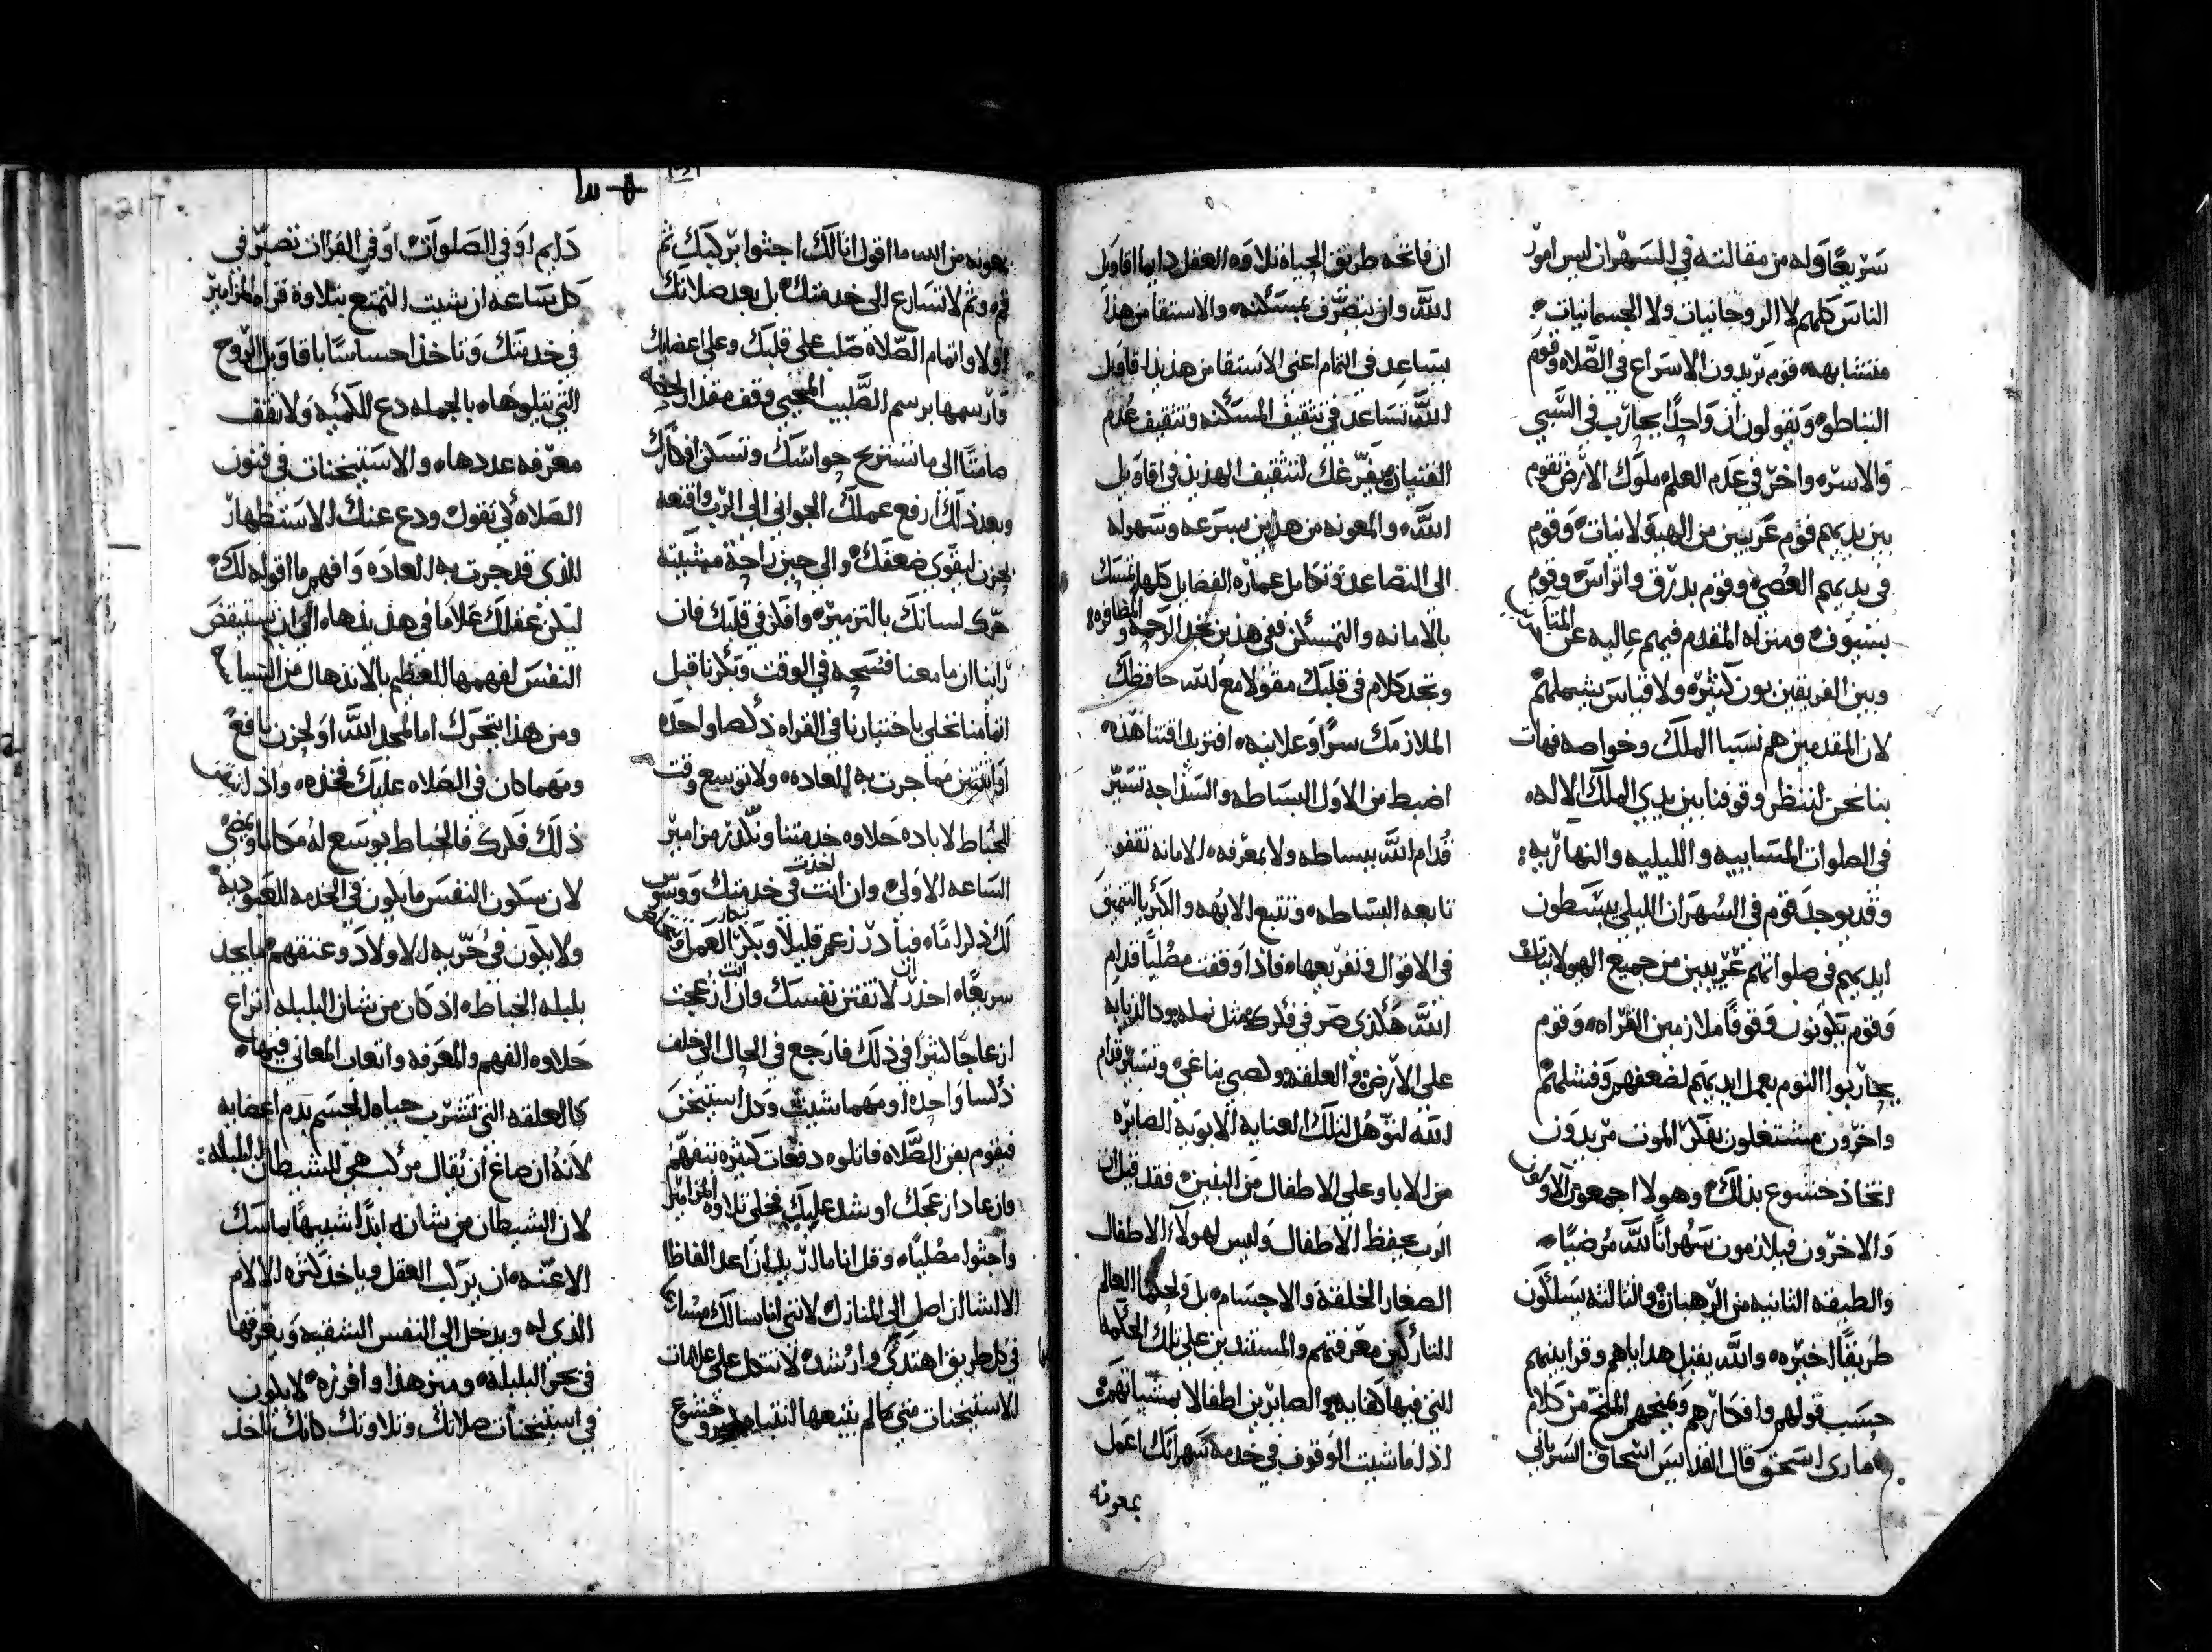 سريعًا وله من مقالته في السهران ليس امور
الناس كلهم لا الروحانيات ولا الجسمانيات
متشابهه قوم يريدون الاسراع في الصلاه وقوم
التباطوه ويقولون ان واحدًا يحارب في السبي
والاسره واخر في عدم العلم ملوك الارض تقوم
بين يديهم قوم غريبين من الهيولانيات وقوم
في يديهم العصي وقوم بدرق واتراس وقوم
بسيوف ومنزله المقدم فيهم عاليه عن
وبين الفريقين بون كثره ولا قياس يشملهم
لان المقدمين هم نسبا الملك وخواصه فهات
بنا نحن لننظر وقوفنا بين يدي الملك الاله
في الصلوات المسابييه والليليه والنهاريه
وقد يوجد قوم في السهران الليلي يبسطون
ايديهم في صلواتهم غريبين من جميع الهيولانيات
وقوم يكونون وقوفًا ملازمين القراه وقوم
يحاربوا النوم بعمل ايديهم لضعفهم وفشلهم
واخرون مشتغلون بفكر الموت مريدون
اتخاذ خشوع بذلك وهولا اجمعون الاولون
والاخرون فيلازمون سهرانًا لله مرضيًا
والطبقه الثانيه من الرهبان والثالثه يسلكون
طريقًا اخيره والله يقبل هداياهم وقرابينهم
حسب قولهم وافكارهم ويمنحهم المنح من كلام
ماري اسحق قال القديس اسحاق السرياني
ان فاتحه طريق الحياة تلاوه العقل دايما اقاويل
الله وان يتصرف بمسكنه والاستقا من هذا
يساعد في التمام اعني الاستقا من هذيذ اقاويل
الله تساعد في تثقيف المسكنه وتثقيف عدم
القنيان يفرغك لتثقيف الهذيذ في اقاويل
الله والمعونه من هذين بسرعه وسهوله
الى التصاعد وتكامل عماره الفضايل كلها تمسك
بالامانه والتمسكن ففي هذين تجد الرحمه والمظافره
وتجد كلام في قلبك مقولا مع لله حافظك
الملازمك سرًا وعلانيه افتريد اقتنا هذه
اضبط من الاول البساطه والسذاجه تسير
قدام الله ببساطه ولا بمعرفه الامانه تقفو
تابعه البساطه وتتبع الابهه والكبر بالتعمق
في الاقوال وتفريعها فاذا وقفت مصليًا قدام
الله هكذى صر في فكرك مثل نمله ودالدبابه
على الارض والعلقه ولصبي يناغي وتسير قدام
الله لتوهل لتلك العنايه الابويه الصايره
من الابا وعلى الاطفال من البنين فقد قيل ان
الرب يحفظ الاطفال وليس لهولاء الاطفال
الصغار الخلقة والاجسام بل ولحكما العالم
التاركين معرفتهم والمستندين على تلك الحكمه
التي فيها كفايه والصايرين اطفالا بمشياتهم
اذا ما شيت الوقوف في خدمة سهرانك اعمل
بمعونه
بمعونه من الله ما اقول انا لك اجثوا بركبك ثم
قم وثم لا تسارع الى خدمتك بل بعد صلاتك
اولا واتمام الصلاة صلب على قلبك وعلى اعضايك
وارسمها برسم الصليب المحيي وقف مقدار لحظه
صامتًا الى ما تستريح حواسك وتسكن افكارك
وبعد ذلك ارفع عملك الجواني الى الرب واقنعه
بحزن ليقوي ضعفك والى حين راحة مشيته
حرك لسانك بالتزمير وافكر في قلبك فان
راينا ان ما معنا فسحه في الوقت وبكرنا قبل
اتمامنا نخلي باختيارنا في القراه ذكصا واحده
او اثنتين مما جرت به العاده ولا نوسع وقت
للخباط لاباده حلاوه خدمتنا ونكدر مزامير
الساعه الاولى وان انت اخذت في خدمتك ووسوس
لك ذكر اما
سريعًا احذر لا تفتن نفسك وان ازعجت
ازعاجًا كثيرًا في ذلك فارجع في الحال الى خلف
ذكسا واحده او مهما شيت وكل استيخن
فيقوم بفن الصلاه فاتلوه دفعات كثيره بتفهم
وان عاد ازعجك او شد عليك فخلي تلاوه المزامير
واجثوا مصليًا وقل انا ما اريد ان اعد الفاظا
الا انشا ان اصل الى المنازل لانني انا سالك
في كل طريق اهتدي وارشده لا تتكل على علامات
الاستيخنات متى ما لم يتبعها انتباه وخشوع
217
دايم او في الصلوات او في القران تصير في
كل ساعه ان شيت التمتع بتلاوة قراه المزامير
في خدمتك وتاخذ احساسًا باقاويل الروح
التي تتلوها بالجمله دع الكميه ولا تقف
معرفه عددها والاستيخنات في فنون
الصلاه لي تفوك ودع عنك الاستظهار
الذي قد جرت به العاده وافهم ما اقوله لك
ليكن عقلك غلامًا في هذيذها الى ان تستيقض
النفس لفهمها العظيم بالاندهال من السيا
ومن هذا يتحرك اما لمجد الله او لحزن نافع
ومهما كان في الصلاه عليك فخذه واذا
ذلك فكرك فالخباط يوسع له مكانا ويجي
لان سكون النفس ما يكون في الخدمه للعبوديه
ولا يكون في حريه الاولاد وعتقهم ما يجد
بلبله الخباطه اذ كان من شان البلبله انزاع
حلاوه الفهم والمعرفه واتعان المعاني فيها
كالعلقه التي تشرب حياه الجسم بدم اعضايه
لانه ان صاغ ان يقال مركب هي للشيطان البلبله
لان الشيطان من شانه ابدًا شبيهًا بماسك
الاعنه ان يركب العقل وياخذ كثره الالام
الذي له ويدخل الى النفس الشقيه ويغرقها
في بحر البلبله وميز هذا وافرزه لا يكون
في استيخنات صلاتك وتلاوتك كانك تاخذ